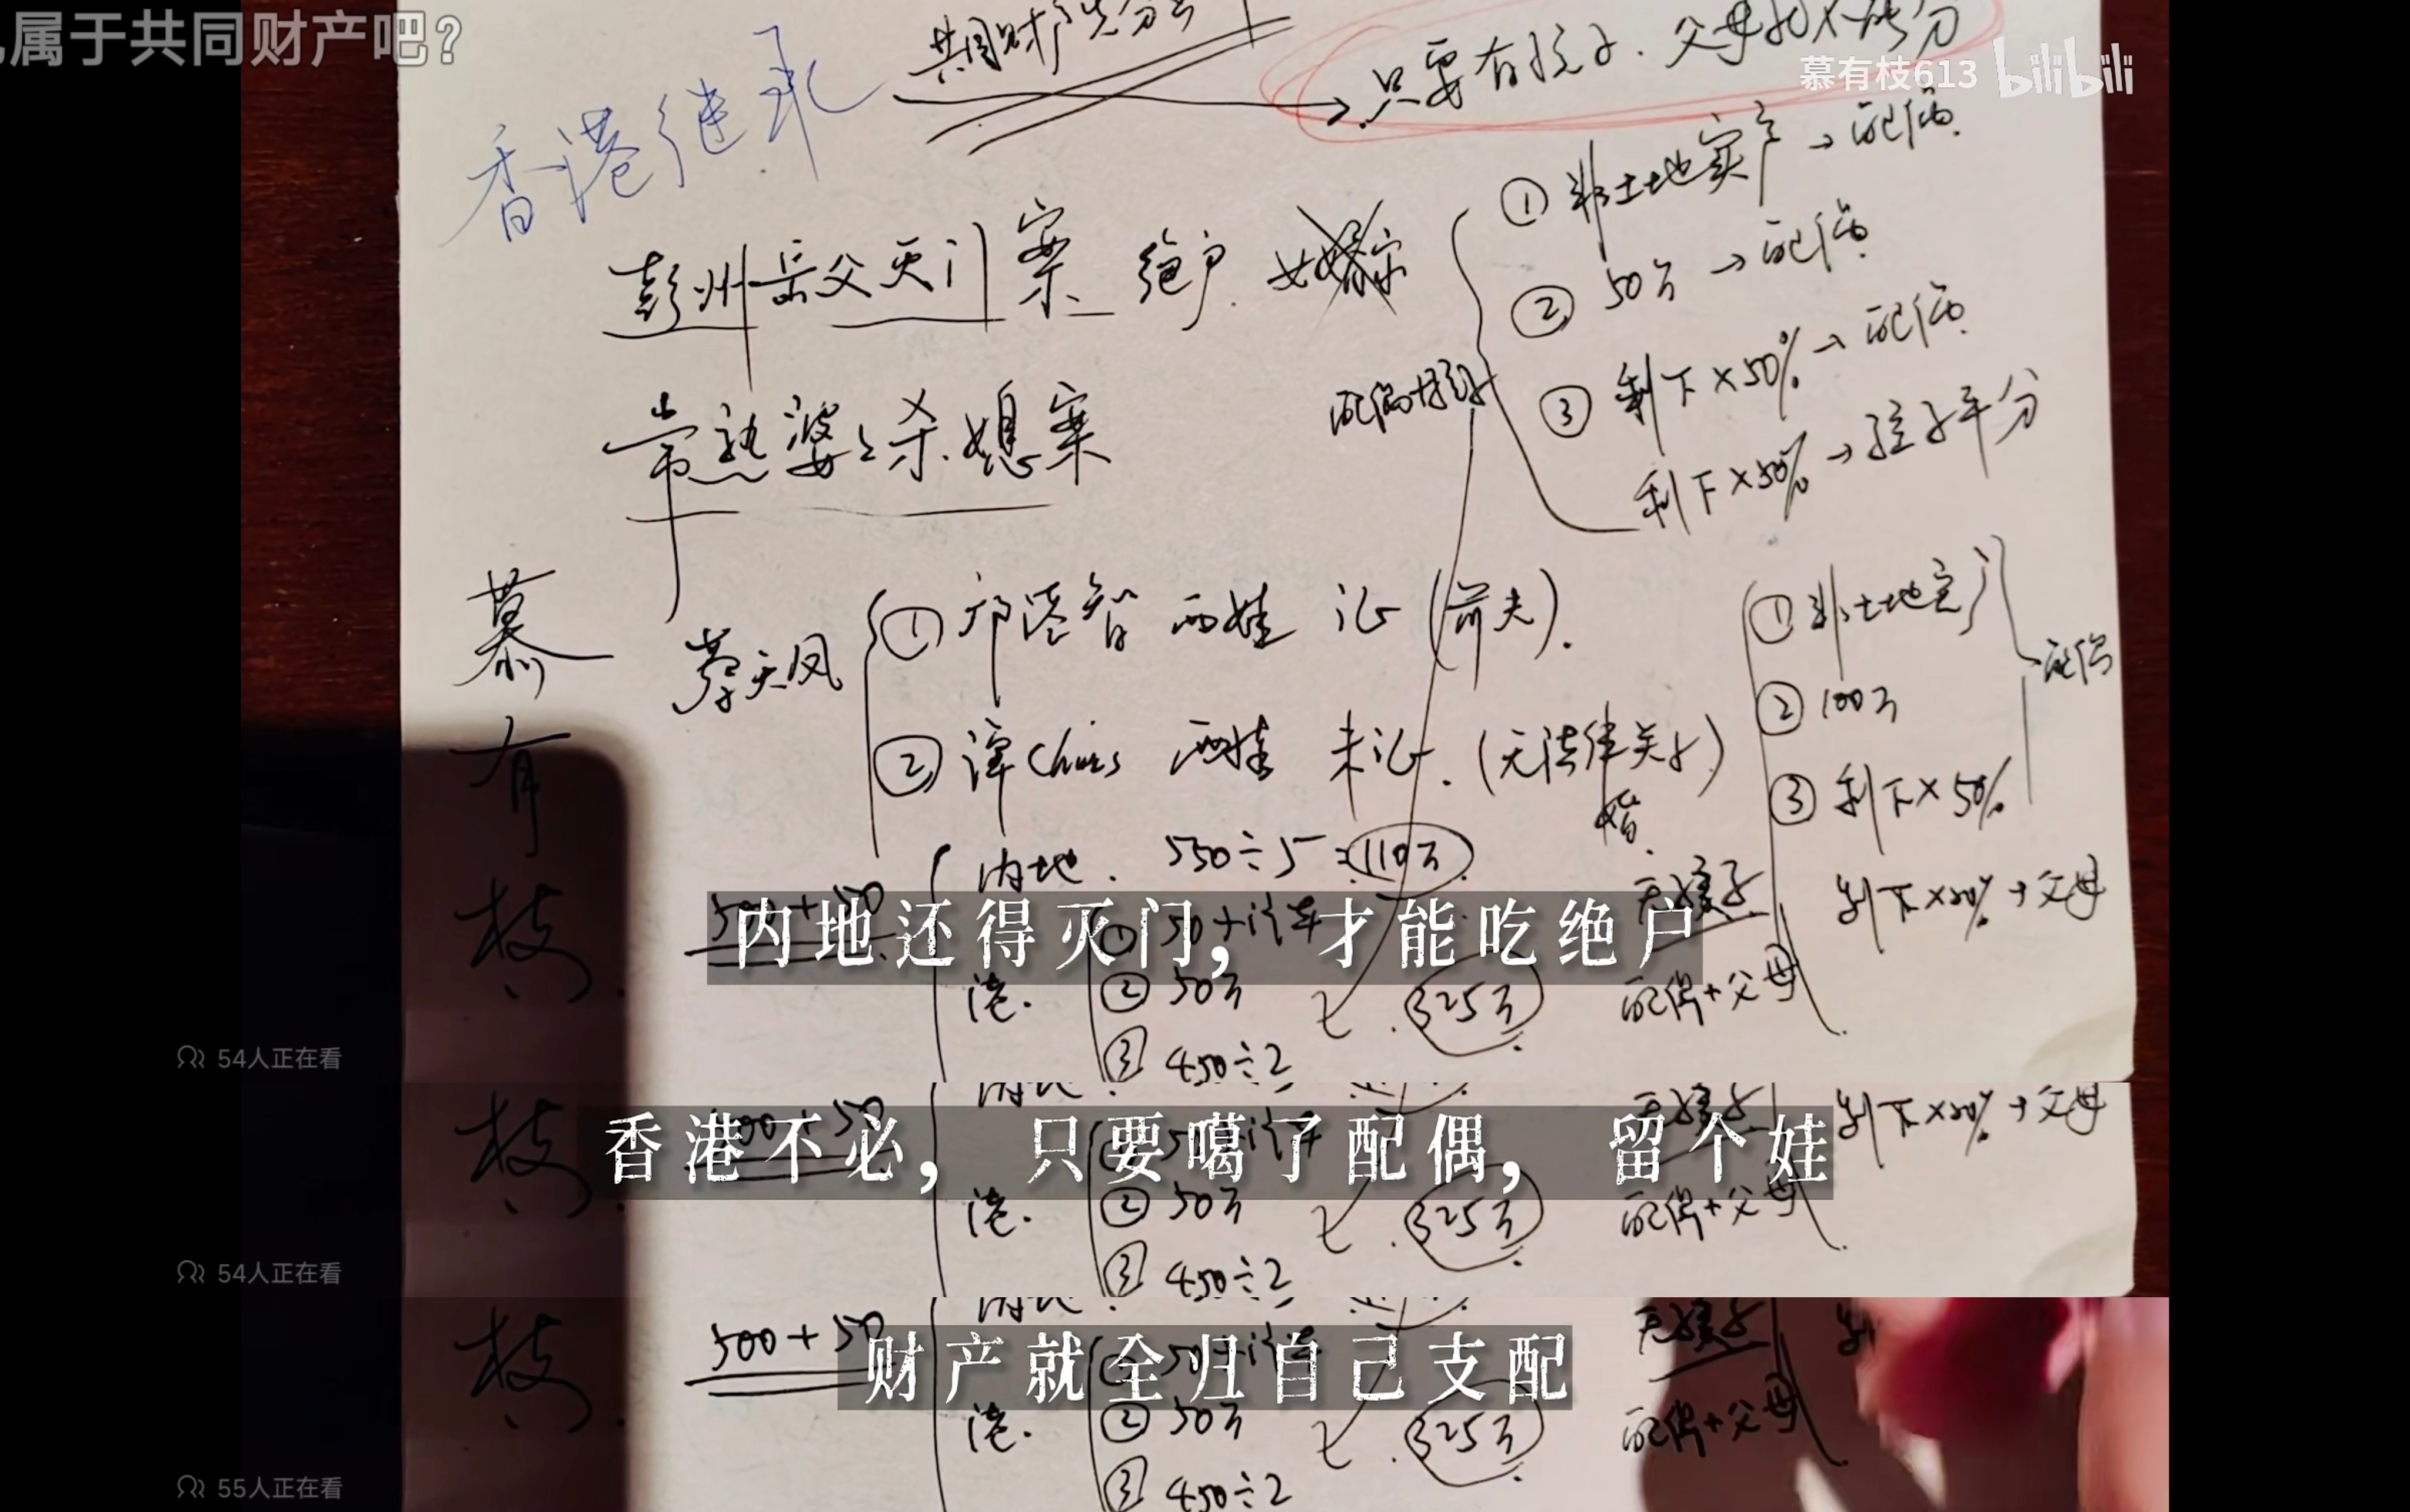 属于共同财产吧?
慕有枝613 bilibili
共同财产先分
只要有孩子.父母就不能分
香港继承
① 非土地实产→配偶.
彭州岳父灭门案.绝户.
② 50万→配偶.
③ 剩下×50%→配偶.
剩下×50%→孩子平分
常熟婆婆杀媳案
慕有枝.
蔡天凤
① 邝港智 两娃 证(前夫).
② 谭Chris 两娃 未证.(无法律关系)
婚
① 非土地实产
② 100万
③ 剩下×50%
配偶
剩下×50%→父母
无孩子
配偶+父母
500+50
内地. 550÷5=110万.
港.
② 50万
③ 450÷2
325万
内地还得灭门, 才能吃绝户
54人正在看
剩下×50%→父母
枝.
香港不必, 只要噶了配偶, 留个娃
港.
② 50万
325万
配偶+父母
③ 450÷2
54人正在看
500+50
无孩子
枝.
财产就全归自己支配
港.
② 50万
325万
配偶+父母
③ 450÷2
55人正在看